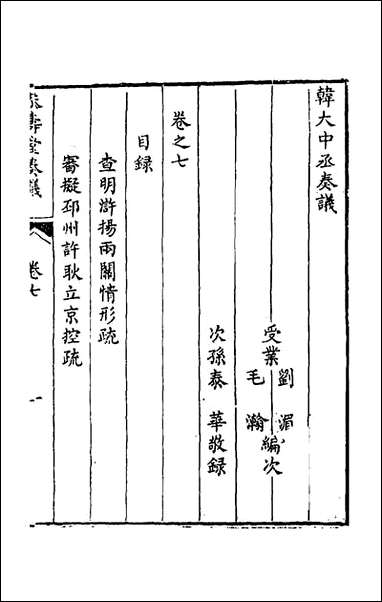 韓大中丞奏議
受業 劉湄 毛瀚 編次
次孫泰華敬録
卷之七
目録
查明滸揚兩關情形疏
審擬邳州許耿立京控疏
壽堂奏議 卷七 一